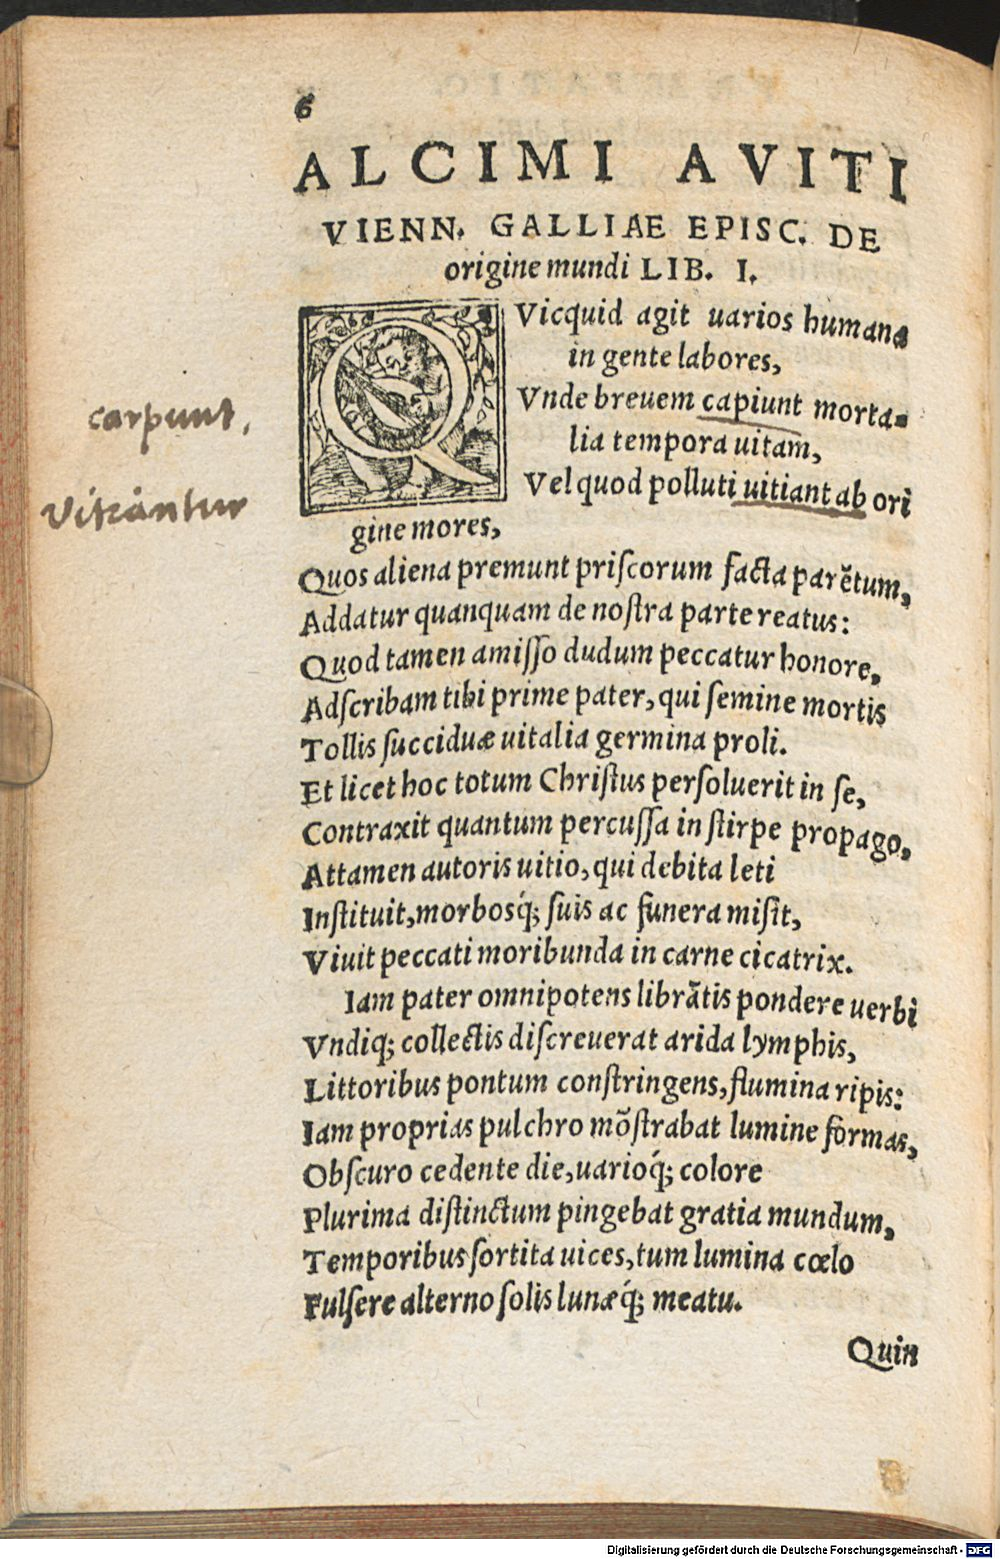 6
ALCIMI AVITI
VIENN. GALLIAE EPISC. DE
origine mundi LIB. I.
QVicquid agit uarios humana
in gente labores,
Vnde breuem capiunt morta-
lia tempora uitam,
Vel quod polluti uitiant ab ori
gine mores,
carpunt,
Vitiantur
Quos aliena premunt priſcorum facta parẽtum,
Addatur quanquam de noſtra parte reatus:
Quod tamen amiſſo dudum peccatur honore,
Adſcribam tibi prime pater, qui ſemine mortis
Tollis ſucciduæ uitalia germina proli.
Et licet hoc totum Chriſtus perſoluerit in ſe,
Contraxit quantum percuſſa in ſtirpe propago,
Attamen autoris uitio, qui debita leti
Inſtituit, morbosq́; ſuis ac funera miſit,
Viuit peccati moribunda in carne cicatrix.
Iam pater omnipotens librãtis pondere uerbi
Vndiq; collectis diſcreuerat arida lymphis,
Littoribus pontum conſtringens, flumina ripis:
Iam proprias pulchro mõſtrabat lumine formas,
Obſcuro cedente die, uarioq́; colore
Plurima diſtinctum pingebat gratia mundum,
Temporibus ſortita uices, tum lumina cœlo
Fulſere alterno ſolis lunæq́; meatu.
Quin
Digitalisierung gefördert durch die Deutsche Forschungsgemeinschaft - DFG